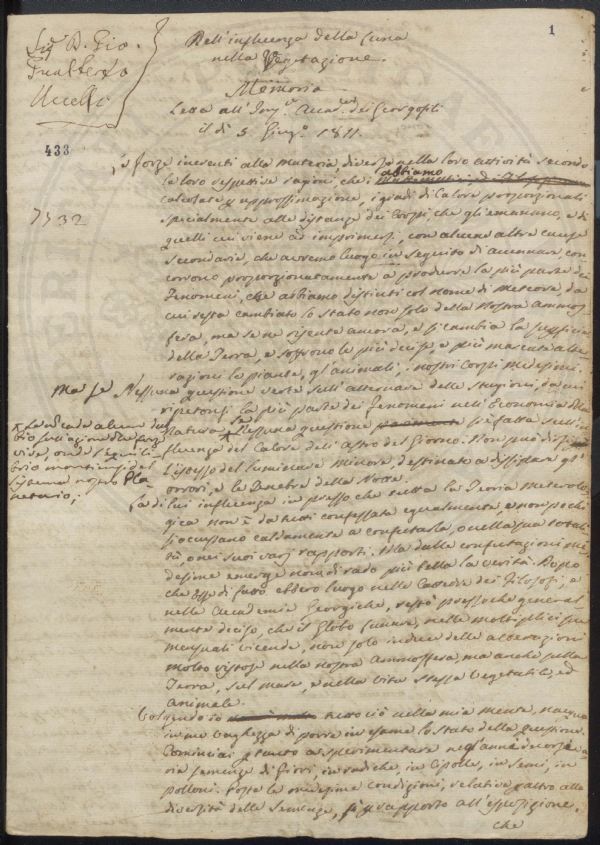 1
Sig. D. Gio.
Gualberto
Uccelli
Dell'influenza della Luna
nella Vegetazione
Memoria
Letta all'Imp. Accad. dei Georgofili
il dì 5 Giug. 1811.
433
7532
forze inerenti alla materia, diverse nella loro attività secondo
abbiamo
le loro respettive ragioni, che i
calcolate approssimazione, i gradi di Calore proporzionali
specialmente alle distanze dei Corpi, che gli emanano, e di
quelli cui viene ad imprimersi, con alcune altre cause
secondarie, che avremo luogo in seguito di accennare, con
corrono proporzionatamente a produrre la più parte dei
Fenomeni, che abbiamo distinti col nome di Meteore, da
cui resta cambiato lo stato non solo della nostra Ammos
fera, ma se ne risente ancora, e si cambia la superficie
della Terra, e soffrono le più decise, e più marcate alte
razioni le piante, gl'animali, i nostri Corpi medesimi.
Ma se Nessuna questione verte sull'alternare delle stagioni, da cui
ripetonsi la più parte dei Fenomeni nell'Economia della
Natura se Nessuna questione si è fatta sull'in
fluenza del Calore dell'astro del Giorno. Non può dirsi
l'istesso del luminare minore, destinato a dissipare gl'
orrori, e le tenebre della Notte.
alcun dub
bio sull'azione
brio
sistema nostro Pla
netario;
La di lui influenza in presso che tutta la Teoria meteorolo
gica non è da tutti confessata egualmente, e non pochi
si occupano caldamente a confutarla, o nella sua totali
tà, o nei suoi varj rapporti. Ma dalle confutazioni me
desime emerge non di rado più bella la verità. Dopo
che di fatto ebbero luogo nelle Cattedre dei Filosofi, e
nelle Accademie Georgiche, restò presso che general
mente deciso, che il Globo Lunare, nelle moltiplici sue
mensuali vicende, non solo induce delle alterazioni
molto vistose nella nostra Ammosfera, ma anche nella
Terra, sul mare, e nella vita stessa Vegetabile, ed
animale.
Volgendo io tutto ciò nella mia mente, nacque
in me vaghezza di porre in esame lo stato della questione.
Cominciai pertanto a sperimentare nell'anno decorso va
rie semenze di Fiori, in radiche, in Cipolle, in semi, in
polloni. Poste le medesime condizioni, relative all'altro alla
diversità delle semenze, rapporto all'esposizione.
che